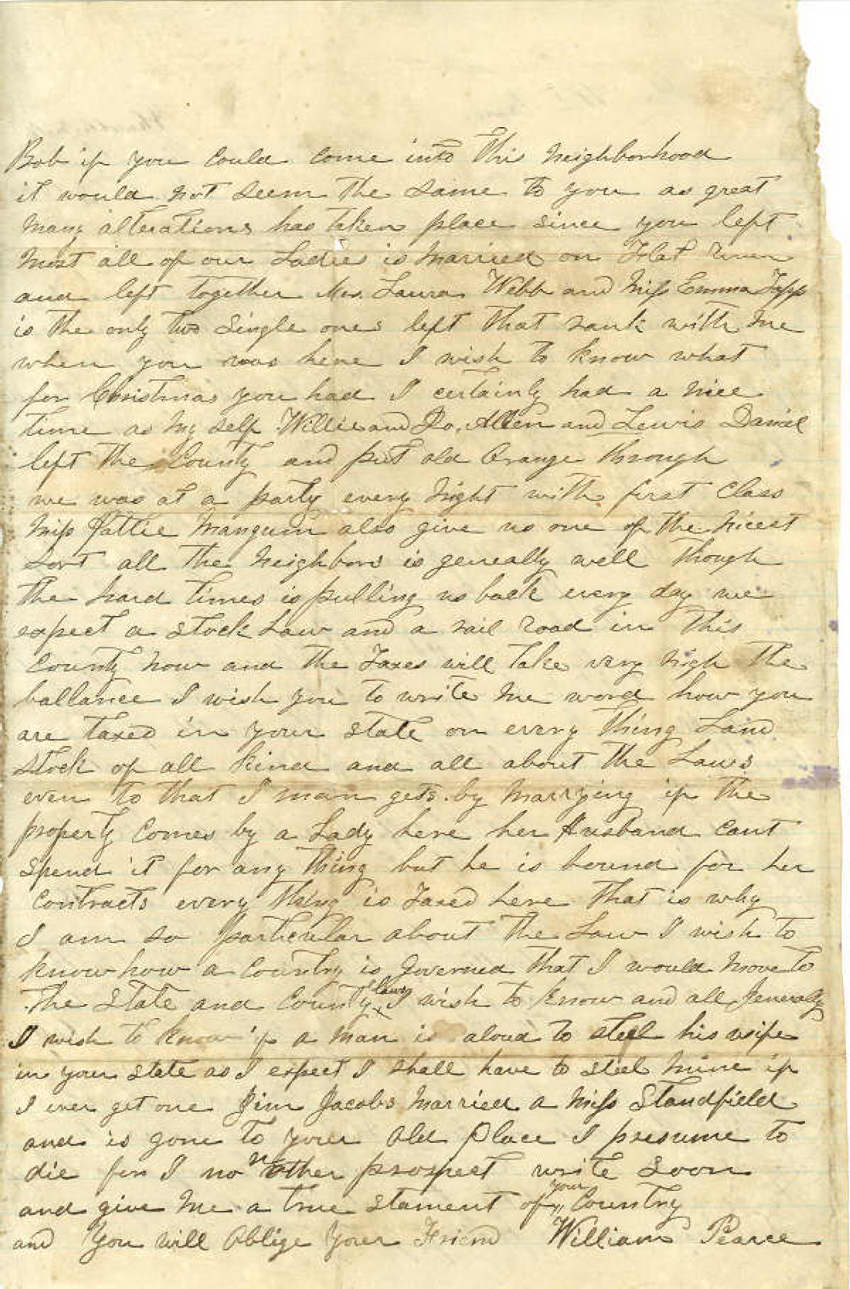 Bob if you could come into this neighborhood
it would not seem the same to you as great
many alterations has taken place since you left
most all of our Ladies is married on Flat River
and left together Mrs. Laura Webb and Miss Emma Tapp
is the only two single ones left that rank with me
when you was here I wish to know what
for Christmas you had I certainly had a nice
time as my self Willie and Allen and Lewis Daniel
left the County and put old Orange through
we was at a party every night with first class
Miss Pattie Mangum also give us one of the nicest
sort all the neighbors is geneally well though
the hard times is pulling us back every day we
expect a stock Law and a rail road in this
County now and the Taxes will take very nigh the
ballance I wish you to write me word how you
are taxed in your state on every thing Land
stock of all kind and all about the Laws
even to that I man gets by marrying if the
property comes by a Lady here her Husband cant
spend it for any thing but he is bound for her
contracts every thing is Taxed here that is why
I am so particular about the Law I wish to
know how a Country is Governed that I would move to
The State and County laws I wish to know and all Generally
I wish to know if a man is aloud to steel his wife
in your state as I expect I shall have to steel mine if
I ever get one Jim Jacobs married a Miss Standfield
and is gone to your old place I presume to
die for I no nother prospect write soon
and give me a true stament of your Country
and you will oblige your Friend William Pearce